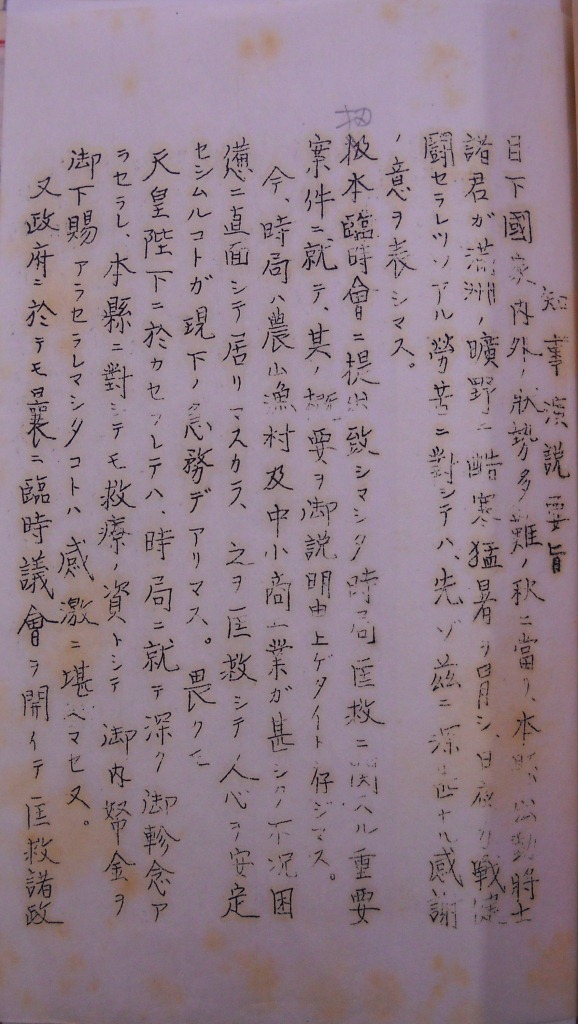 知事演説要旨
目下國家内外ノ狀勢多難ノ秋ニ當リ、本縣出動將士
諸君ガ滿洲ノ曠野ニ酷寒猛暑ヲ冒シ、日夜力戰健
鬪セラレツツアル勞苦ニ對シテハ、先ヅ茲ニ深甚ナル感謝
ノ意ヲ表シマス。
扨
扨本臨時會ニ提出致シマシタ時局匡救ニ関ハル重要
案件ニ就テ、其ノ概要ヲ御説明申上ゲタイト存ジマス。
今、時局ハ農山漁村及中小商工業ガ甚シク不況困
憊ニ直面シテ居リマスカラ、之ヲ匡救シテ人心ヲ安定
セシムルコトガ現下ノ急務デアリマス。畏クモ
天皇陛下ニ於カセラレテハ、時局ニ就テ深ク御軫念ア
ラセラレ、本縣ニ對シテモ救療ノ資トシテ 御内帑金ヲ
御下賜アラセラレマシタコトハ感激ニ堪ヘマセヌ。
又政府ニ於テモ曩ニ臨時議會ヲ開イテ匡救諸政